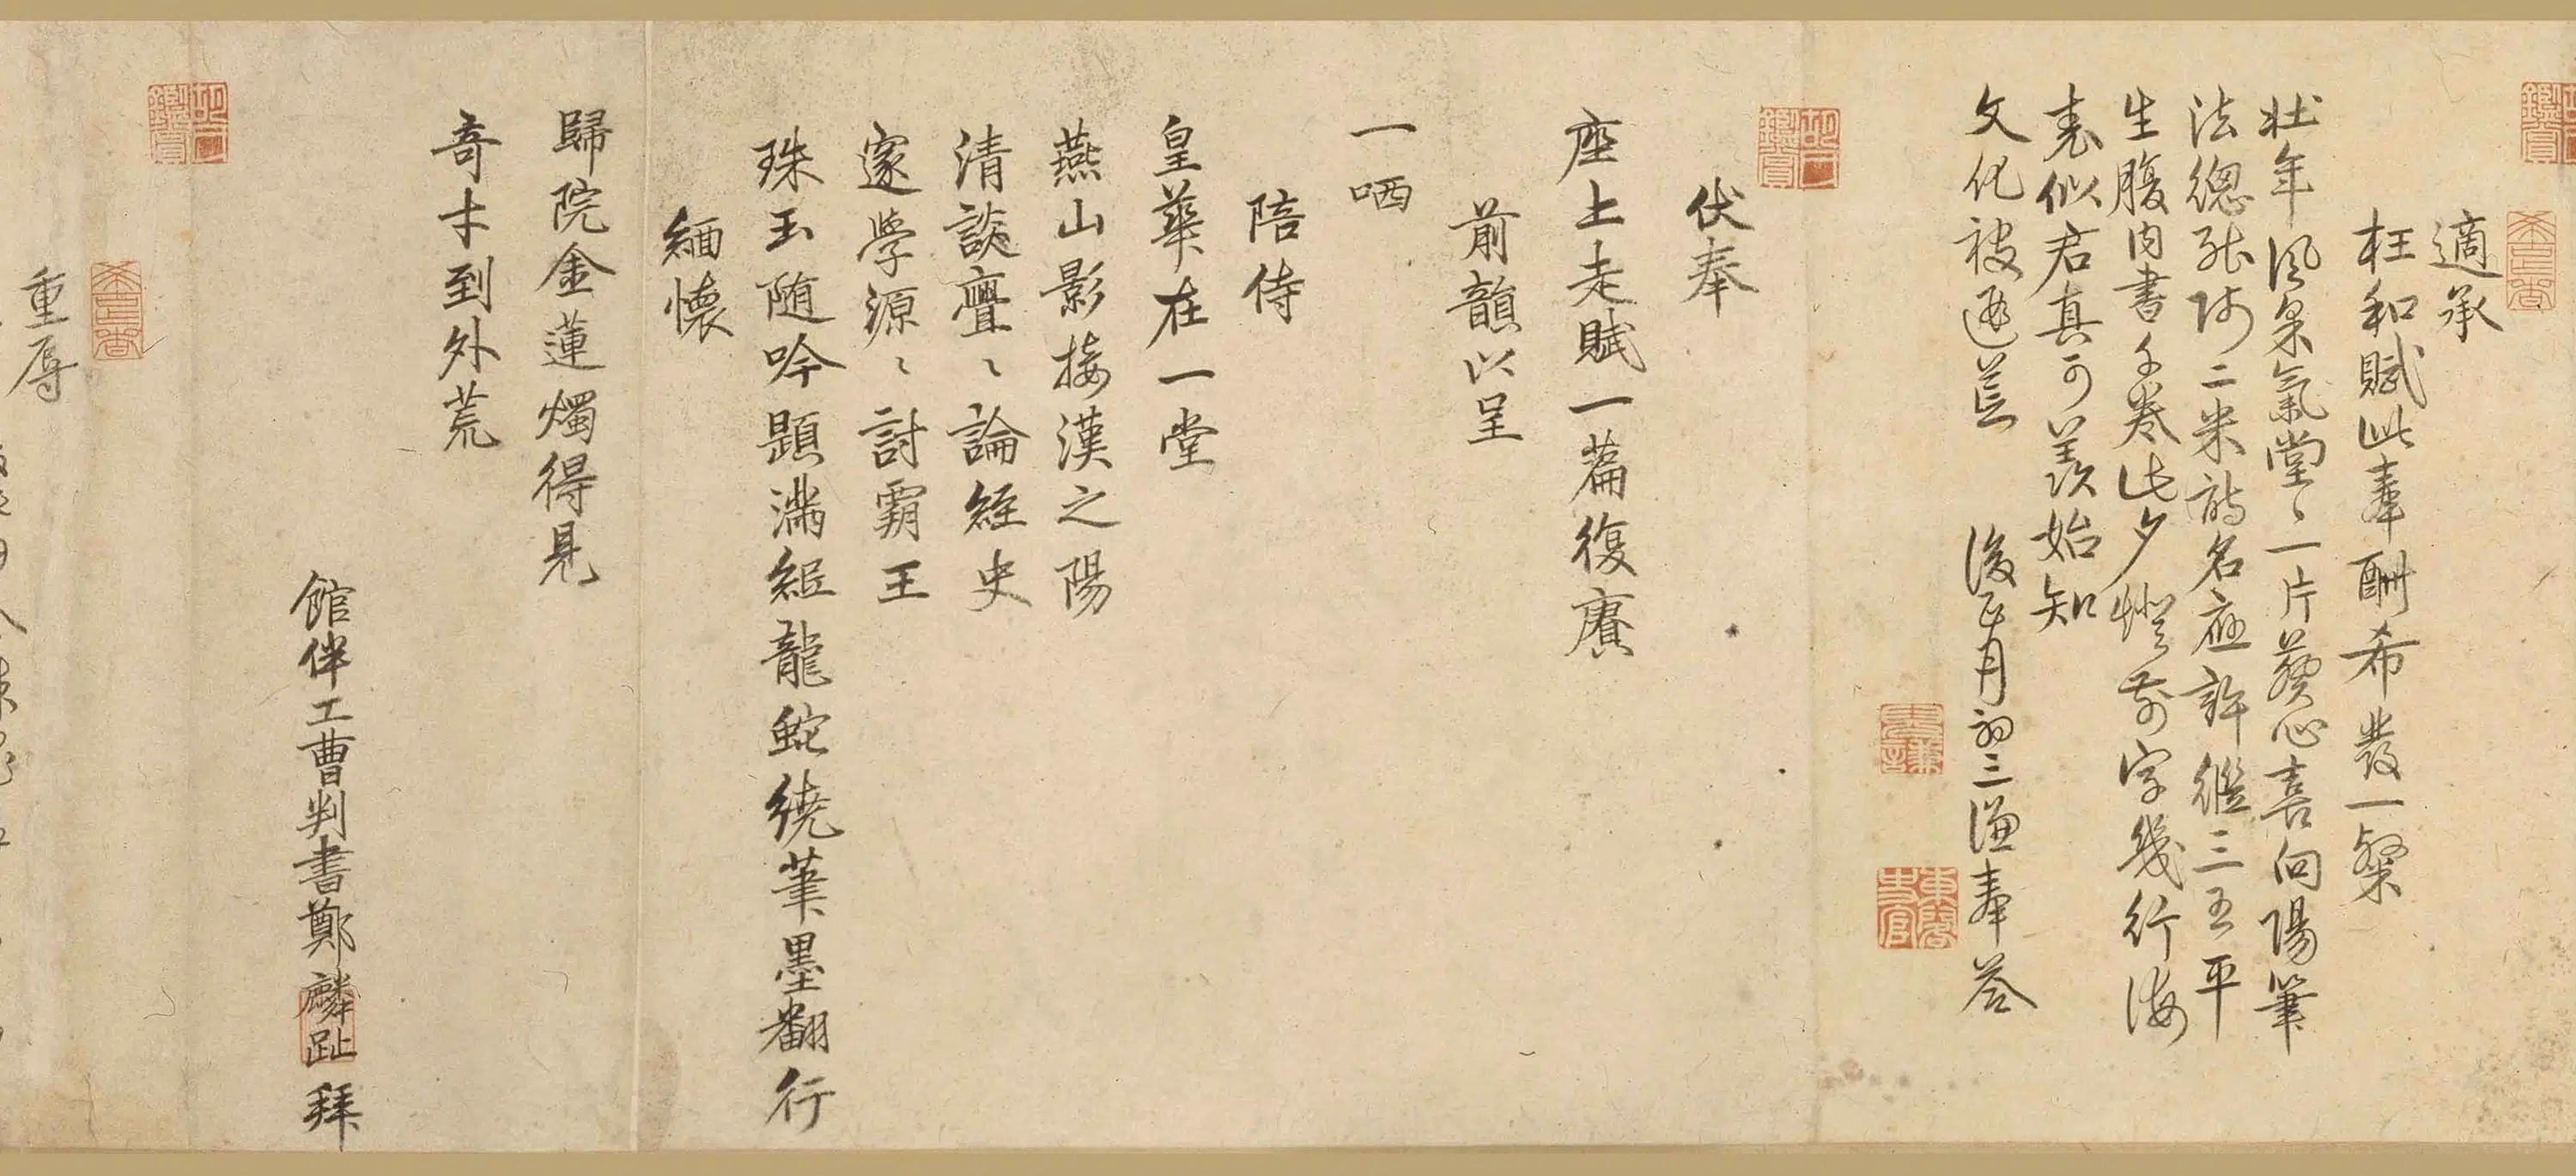 適承
枉和賦此奉酬希發一粲
壯年風采氣堂〻一片葵心喜向陽筆
法總能師二米詩名應許繼三王平
生腹內書千卷此夕燈前字幾行海
表似君真可羨始知
文化被遐荒　後正月初三謙奉答
伏奉
座上走賦一篇復賡
前韻以呈
一哂
陪侍
皇華在一堂
燕山影接漢之陽
清談亹〻論經史
邃學源〻討霸王
珠玉隨吟題滿紙龍蛇繞筆墨翻行
緬懷
歸院金蓮燭得見
奇才到外荒
館伴工曹判書鄭麟趾拜
重辱